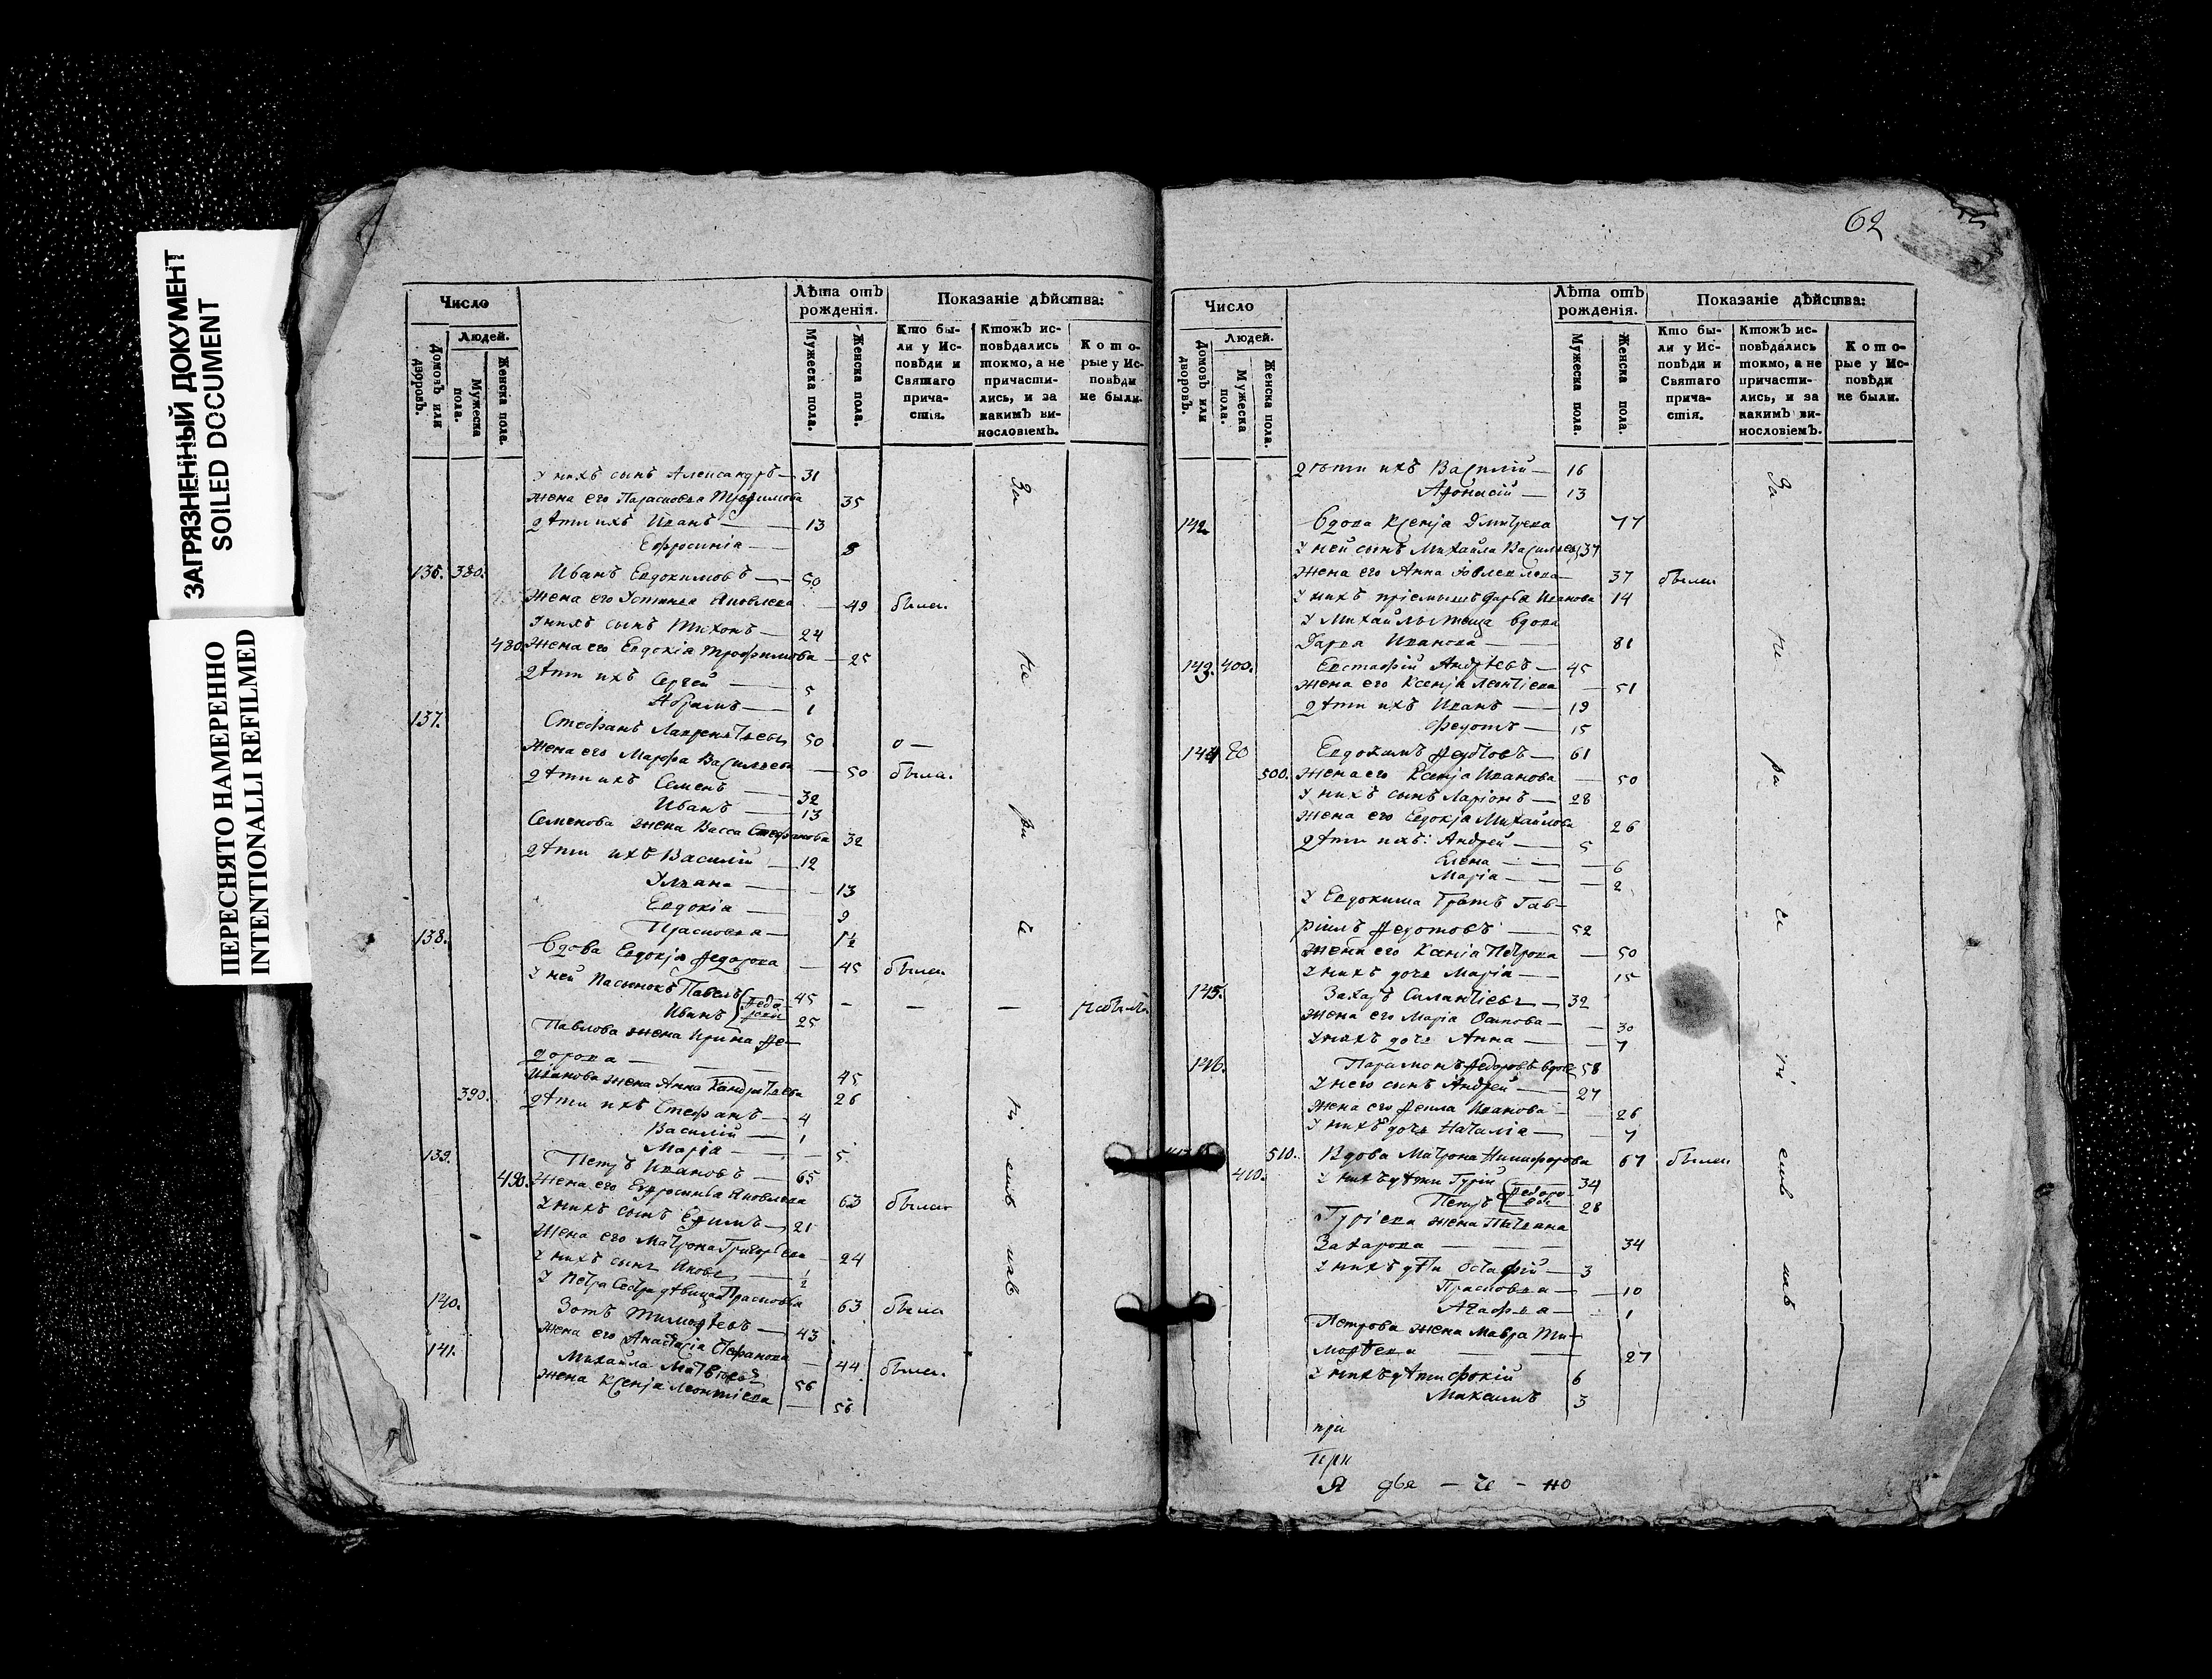 ЗАГРЯЗНЕННЫЙ ДОКУМЕНТ
SOILED DOCUMENT
ПЕРЕСНЯТО НАМЕРЕННО
INTENTIONALLI REFILMED
Число
Людей.
Домовъ или дворовъ.
Мужеска пола.
Женска пола.
Лѣта отъ рожденія.
Мужеска пола.
Женска пола.
Показаніе дѣйства:
Кто бы-
ли у Ис-
повѣди и
Святаго
прича-
стія.
Ктожъ ис-
повѣдались
токмо, а не
причасти-
лись, и за
какимъ ви-
нословіемъ.
Кото-
рые у Ис-
повѣди
не были.
У нихъ сынъ Александръ — 31
Жена его Парасковья Трофимова 35
дѣти ихъ Иванъ — 13
Ефросинія — 8
136. 380. Иванъ Евдокимовъ — 50
Жена его Устинья Яковлева — 49 были.
У нихъ сынъ Тихонъ — 24
480. Жена его Евдокія Трофимова — 25
дѣти ихъ Сергей — 5
Абрамъ — 1
137. Стефанъ Лаврентьевъ 50 о —
Жена его Марфа Васильева — 50 была.
дѣти ихъ Семенъ — 32
Иванъ — 13
Семенова жена Васса Стефанова 32
дѣти ихъ Василій — 12
Ульяна — 13
Евдокія — 9
Прасковья — 1½
138. Вдова Евдокja Федорова — 45 была
У ней пасынокъ Павелъ 45 — — — не былъ
Иванъ Федоровы 25
Павлова жена Ирина Фе-
дорова — 45
Иванова жена Анна Кандратьева 26
390. дѣти ихъ Стефанъ — 4
Василій — 1
Марія — 5
139. Петръ Ивановъ — 65
490. Жена его Ефросинья Яковлева 63 были
У нихъ сынъ Ефимъ — 21
Жена его Матрона Григорьева 24
У нихъ сынъ Яковъ — ½
У Петра сестра дѣвица Прасковья 63 была
140. Зотъ Тимофѣевъ — 43
Жена его Анастасіа Стефанова — 44 были.
141. Михайла Матвѣевъ 56
Жена Ксенjя Леонтіева — 56
За не ра че ні емъ
62
Число
Людей.
Домовъ или дворовъ.
Мужеска пола.
Женска пола.
Лѣта отъ рожденія.
Мужеска пола.
Женска пола.
Показаніе дѣйства:
Кто бы-
ли у Ис-
повѣди и
Святаго
прича-
стія.
Ктожъ ис-
повѣдались
токмо, а не
причасти-
лись, и за
какимъ ви-
нословіемъ.
Кото-
рые у Ис-
повѣди
не были.
дѣти ихъ Василій — 16
Афонасій — 13
142. Вдова Ксенjя Дмитрева 77
У ней сынъ Михайла Васильевъ 37
Жена его Анна Іовлевлева — 37 были
У нихъ пріемышъ Дарья Иванова 14
У Михайлы теща вдова
Дарья Иванова — 81
143. 400. Евстафій Андрѣевъ — 45
Жена его Ксенjя Леонтіева — 51
дѣти ихъ Иванъ — 19
Федотъ — 15
144 Евдокимъ Федотовъ — 61
500. Жена его Ксенjя Иванова — 50
У нихъ сынъ Ларіонъ — 28
Жена его Евдокjя Михайлова 26
дѣти ихъ: Андрей — 5
Елена — 6
Маріа — 2
У Евдокима братъ Гав-
ріилъ Федотовъ — 52
Жена его Ксеніа Петрова — 50
У нихъ дочь Маріа — 15
145. Захаръ Силантіевъ — 32
Жена его Маріа Осипова — 30
У нихъ дочь Анна — 7
146. Парамонъ Федоровъ вдов 58
У него сынъ Андрей — 27
Жена его Фекла Иванова — 26
У нихъ дочь Наталіа — 7
510. Вдова Матрона Никифорова 67 были
410. У нихъ дѣти Гурій 34
Петръ Федоровы 28
Гуріева жена Татьяна
Захарова — 34
У нихъ дѣти Остафій — 3
Прасковья — 10
Агафья — 1
Петрова жена Мавра Ти-
мофѣева — 27
У нихъ дѣти Фокій 6
Максимъ 3
За не ра че ні емъ
при
При
Я две — че — но